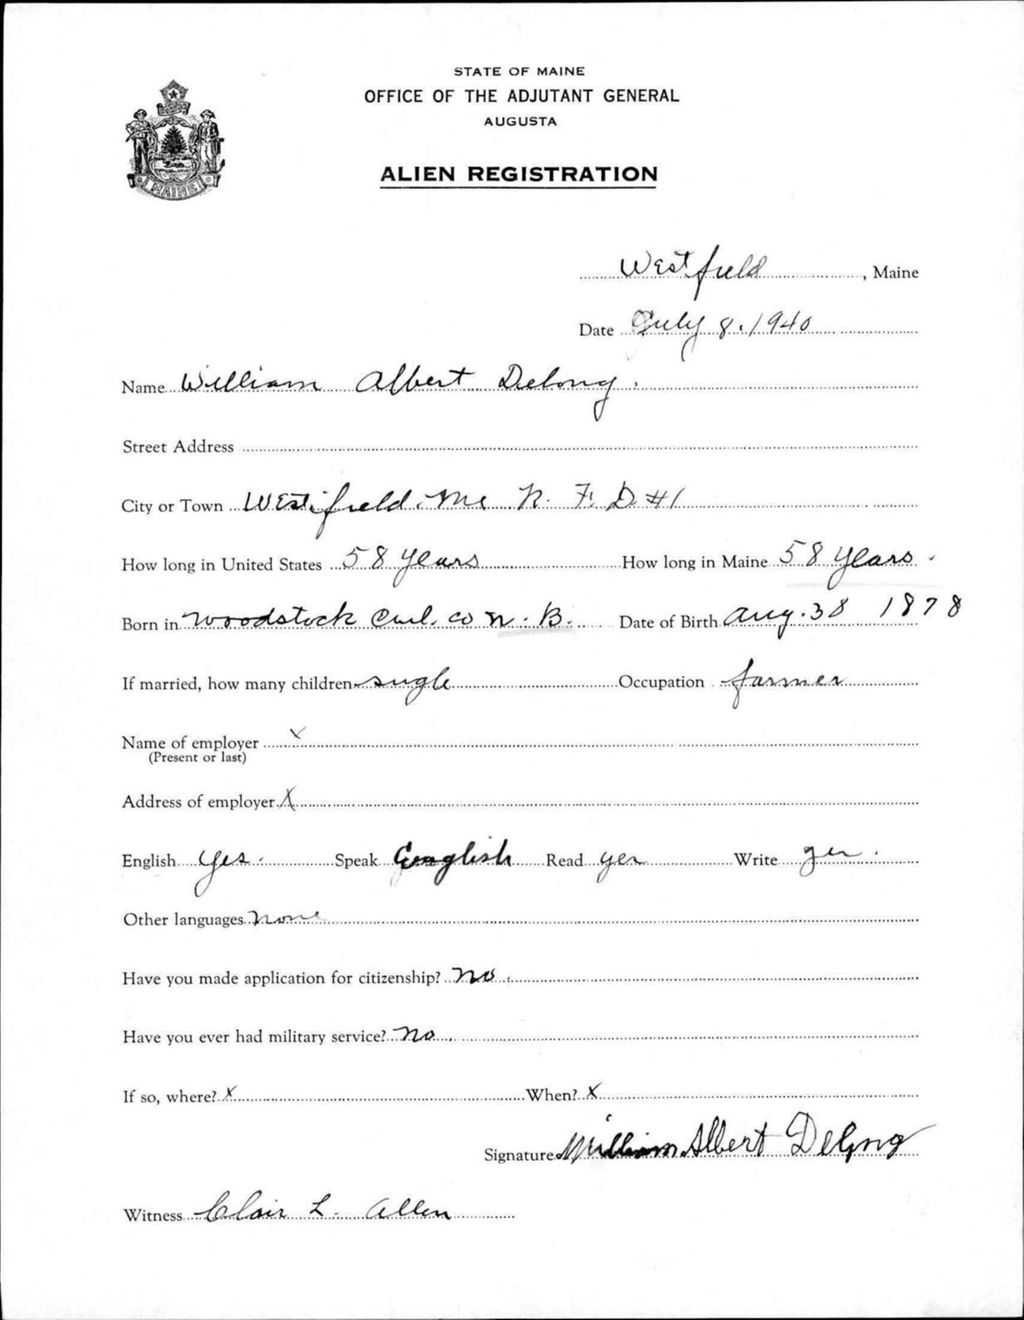 STATE OF MAINE
OFFICE OF THE ADJUTANT GENERAL
AUGUSTA
ALIEN REGISTRATION
MAINE
Westfield, Maine
Date July 8, 1940
Name William Albert Delong.
Street Address
City or Town Westfield, Me R. F. D #1
How long in United States 58 years How long in Maine 58 years.
Born in Woodstock Carl. Co N. B. Date of Birth Aug. 38 1878
If married, how many children single Occupation farmer
Name of employer x
(Present or last)
Address of employer X
English Yes. Speak English Read yes Write yes.
Other languages none
Have you made application for citizenship? No.
Have you ever had military service? No
If so, where? x When? x
Signature William Albert Delong
Witness Clair L. Allen